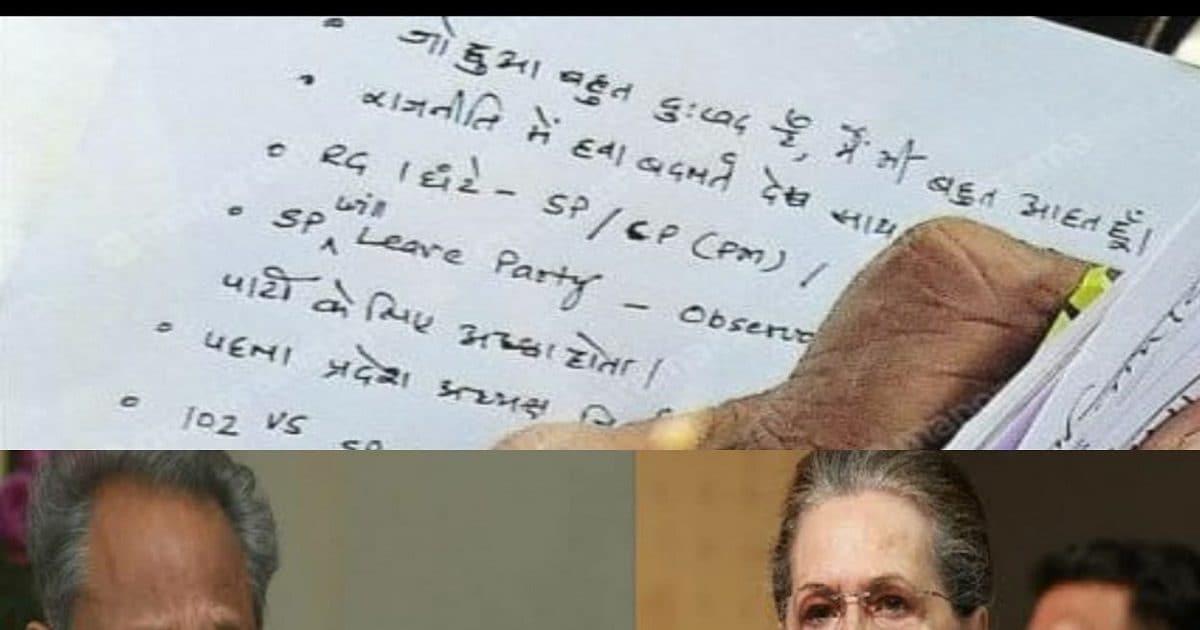 • जो हुआ बहुत दुःखद है, मैं भी बहुत आहत हूँ।
• राजनीति में हवा बदलते देख साथ
• RG 1 घंटे - SP/CP (PM) /
• SP will Leave Party - Observ
पार्टी के लिए अच्छा होता।
• पहला प्रदेश अध्यक्ष
• 102 VS SP